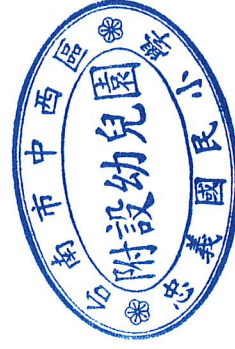 台南市中西區
忠義國民小學
附設幼兒園